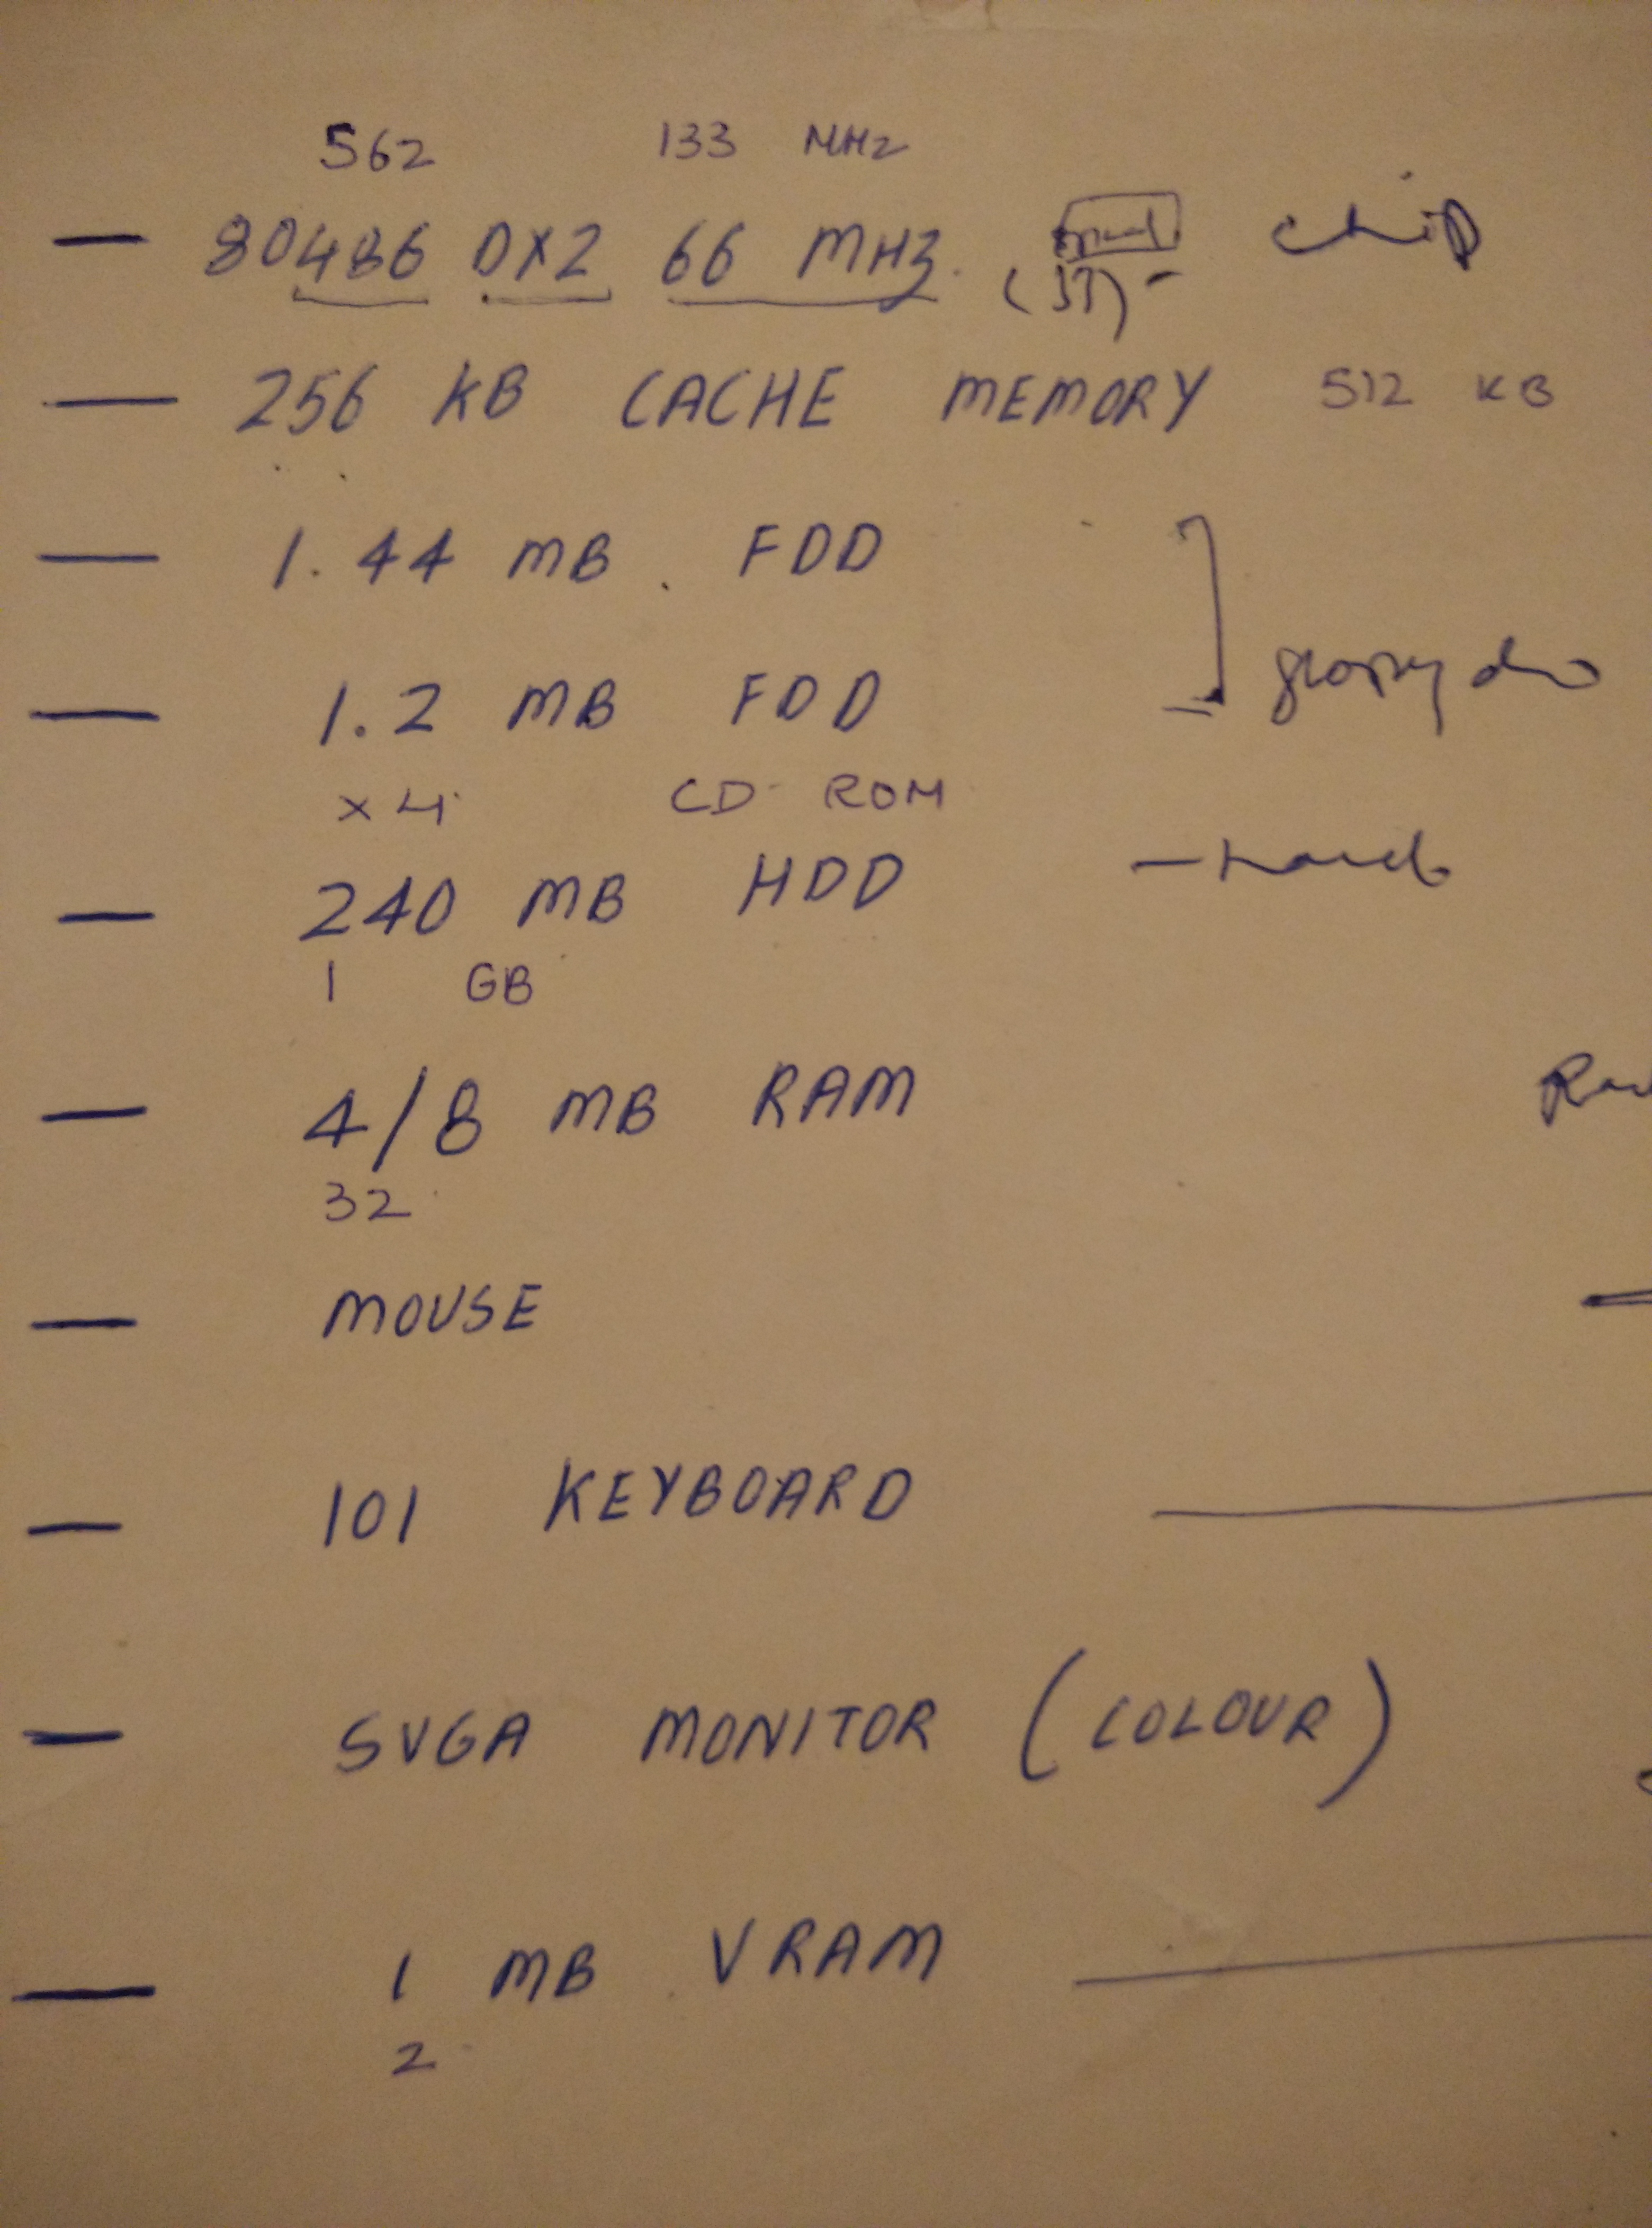 562 133 MHz
— 80486 DX2 66 MHz. chip
— 256 KB CACHE MEMORY 512 KB
— 1.44 MB FDD
— 1.2 MB FDD
x4 CD ROM
— 240 MB HDD
1 GB
— 4/8 MB RAM
32
— MOUSE
— 101 KEYBOARD
— SVGA MONITOR (COLOUR)
— 1 MB VRAM
2